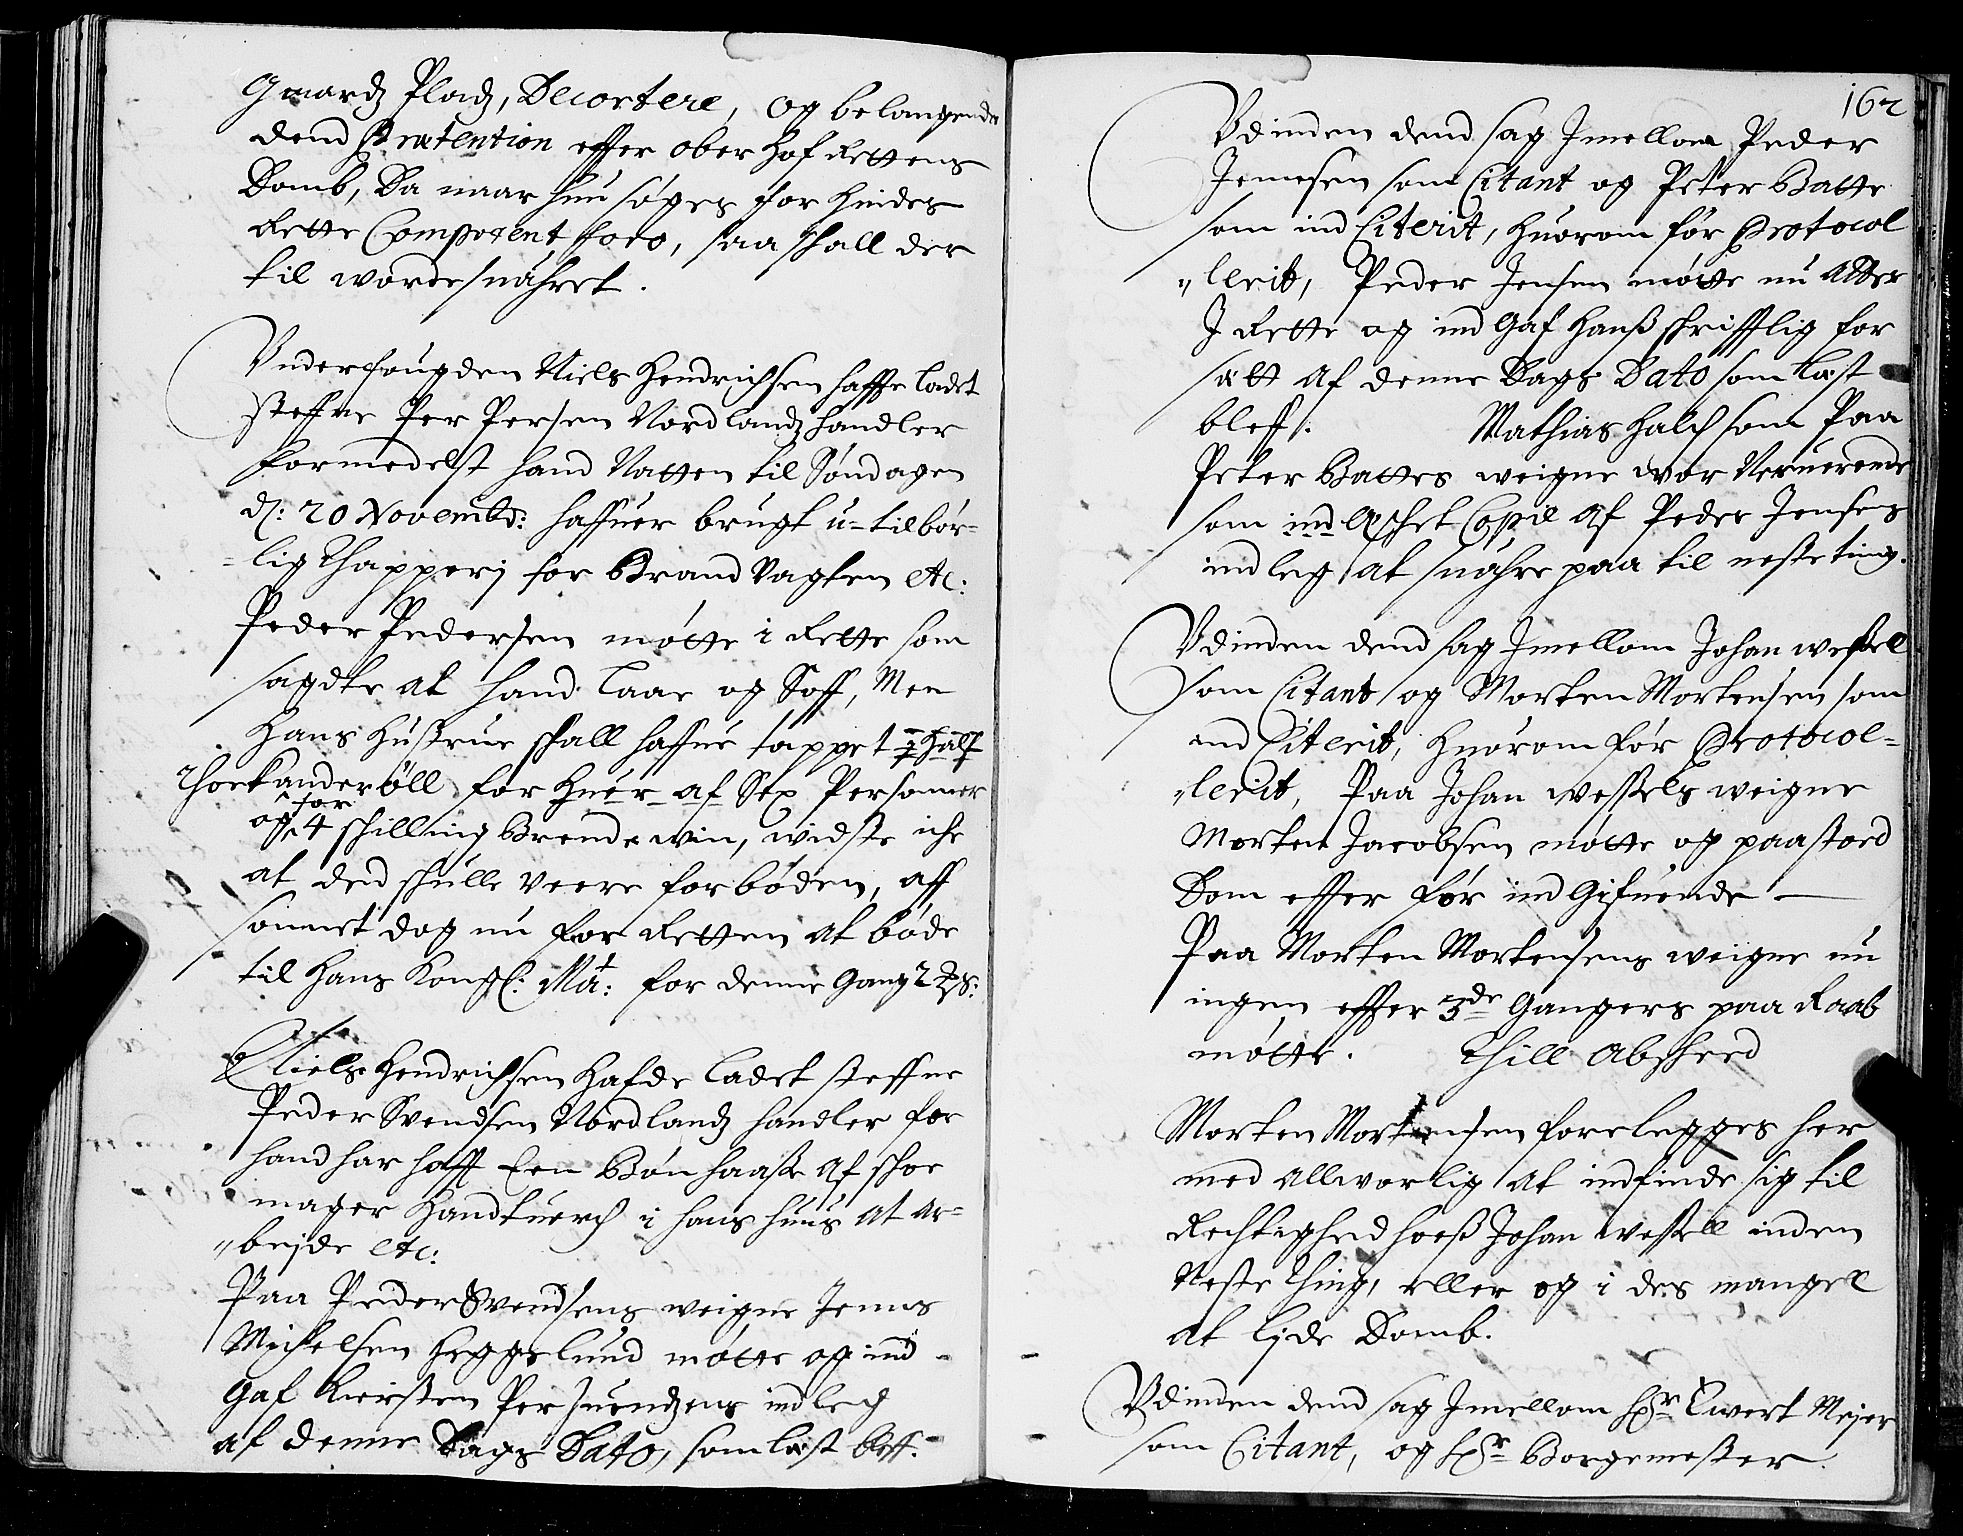 Gaards Plads, Decortere, og belangende
dend Prætention effter ober Hof Rettens
Domb, Da naar hun søges for hindes
Rette Competent foro, saa schall der
til worde suahret.
Underfougden Niels Hendrichsen haffe ladet
steffne Per Persen Nordlands handler
formedelst hand Natten til Søndagen
d: 20 Novembr: haffuer brugt u-tilbør-
-lig Thapperj for Brand Vagten etc:
Peder Pedersen møtte i Rette som
sagdte at hand laae og Soff, Men
Hans Hustrue schall haffue tappet 1 halff
for
og 4 schilling Brendewin, widste iche
at ded schulle veere forbøden, aff
sonnet dog nu for Retten at bøde
til Hans Kongl: Ma:t for denne Gang 2 Rd:
Niels Hendrichsen Hafde ladet steffne
Peder Svendsen Nordlands handler for
hand har hafft Een Bønhaasse af schoe
mager Handtuerch i hans huus at ar=
"bejde etc:
Paa Peder Svendsens weigne Jenns
Michelsen Heggelund møtte og ind
Gaf Kiersten Per Suendsens indleg
af denne Dags Dato, som læst bleff.
162
Udinden dend sag Jmellom Peder
Jennsen som Citant og Peter Batte
som ind Citerit, huorom før Protocol
"lerit, Peder Jensen møtte nu atter
J Rette og ind Gaf Hanss schrifftlig for
sætt af denne Dags Dato som læst
bleff. Mathias Falch som Paa
Peter Battes weigne war Neruerende
som ind Eschet Copie af Peder Jensens
indleg at suahre paa til neste ting.
Udinden dend sag Jmellom Johan Wessell
som Citant og Morten Mortensen som
ind Citerit, huorom før Protocol=
"lerit, Paa Johan Wessels weigne
Morten Jacobsen møtte og paastoed
Dom effter før ind Gifuende —
Paa Morten Mortensens weigne nu
ingen effter 3de Gangers paa Raab
møtte. Thill Abscheed
Morten Mortensen forelegges her
med allworlig at indfinde sig til
Rechtighed hoess Johan Wessell inden
Neste Thing, eller og i des mangel
at lide Domb.
Udinden dend sag Jmellom Hr Ewert Mejer
som Citant, og Hr Borgemester